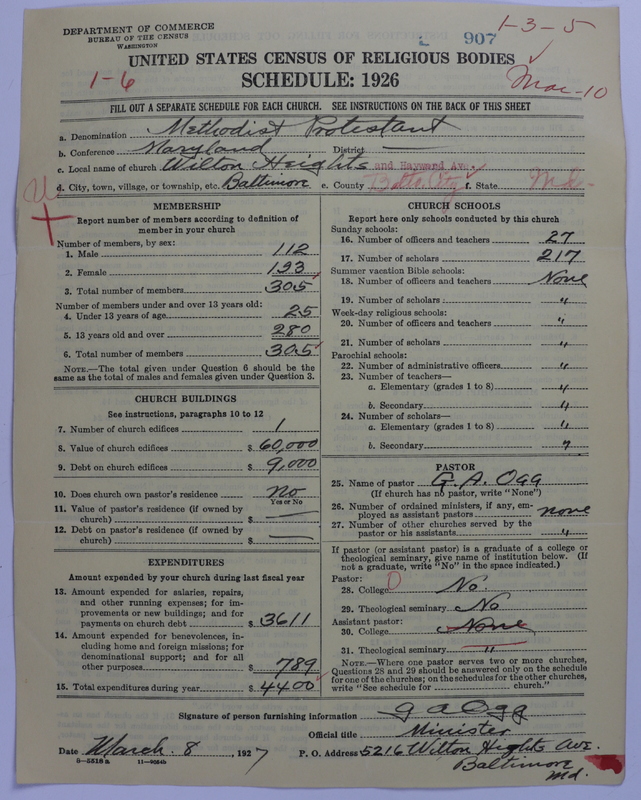 1-3-5
DEPARTMENT OF COMMERCE
BUREAU OF THE CENSUS
WASHINGTON
907
UNITED STATES CENSUS OF RELIGIOUS BODIES
1-6
SCHEDULE: 1926
Mac-10
FILL OUT A SEPARATE SCHEDULE FOR EACH CHURCH. SEE INSTRUCTIONS ON THE BACK OF THIS SHEET
a. Denomination Methodist Protestant
b. Conference Maryland District
c. Local name of church Wilton Heights and Hayward Ave.
d. City, town, village, or township, etc. Baltimore e. County Balto City f. State Md.
MEMBERSHIP
Report number of members according to definition of
member in your church
Number of members, by sex:
1. Male 112
2. Female 193
3. Total number of members 305
Number of members under and over 13 years old:
4. Under 13 years of age 25
5. 13 years old and over 280
6. Total number of members 305
NOTE.—The total given under Question 6 should be
same as the total of males and females given under Question 3.
CHURCH BUILDINGS
See instructions, paragraphs 10 to 12
7. Number of church edifices 1
8. Value of church edifices $ 60,000
9. Debt on church edifices $ 9,000
10. Does church own pastor's residence No
Yes or No
11. Value of pastor's residence (if owned by
church) $
12. Debt on pastor's residence (if owned by
church) $
EXPENDITURES
Amount expended by your church during last fiscal year
13. Amount expended for salaries, repairs,
and other running expenses; for im-
provements or new buildings; and for
payments on church debt $ 3611
14. Amount expended for benevolences, in-
cluding home and foreign missions; for
denominational support; and for all
other purposes $ 789
15. Total expenditures during year $ 4400
CHURCH SCHOOLS
Report here only schools conducted by this church
Sunday schools:
16. Number of officers and teachers 27
17. Number of scholars 217
Summer vacation Bible schools:
18. Number of officers and teachers None
19. Number of scholars "
Week-day religious schools:
20. Number of officers and teachers "
21. Number of scholars "
Parochial schools:
22. Number of administrative officers "
23. Number of teachers—
a. Elementary (grades 1 to 8) "
b. Secondary "
24. Number of scholars—
a. Elementary (grades 1 to 8) "
b. Secondary "
PASTOR
25. Name of pastor G. A. Ogg
(If church has no pastor, write "None")
26. Number of ordained ministers, if any, em-
ployed as assistant pastors none
27. Number of other churches served by the
pastor or his assistants "
If pastor (or assistant pastor) is a graduate of a college or
theological seminary, give name of institution below. (If
not a graduate, write "No" in the space indicated.)
Pastor:
28. College No.
29. Theological seminary No
Assistant pastor:
30. College None
31. Theological seminary "
NOTE.—Where one pastor serves two or more churches,
Questions 28 and 29 should be answered only on the schedule
for one of the churches; on the schedules for the other churches,
write "See schedule for church."
Signature of person furnishing information G A Ogg
Official title Minister
Date March. 8, 1927 P. O. Address 5216 Wilton Hights Ave.
Baltimore
Md.
9-5518a 11-9064b